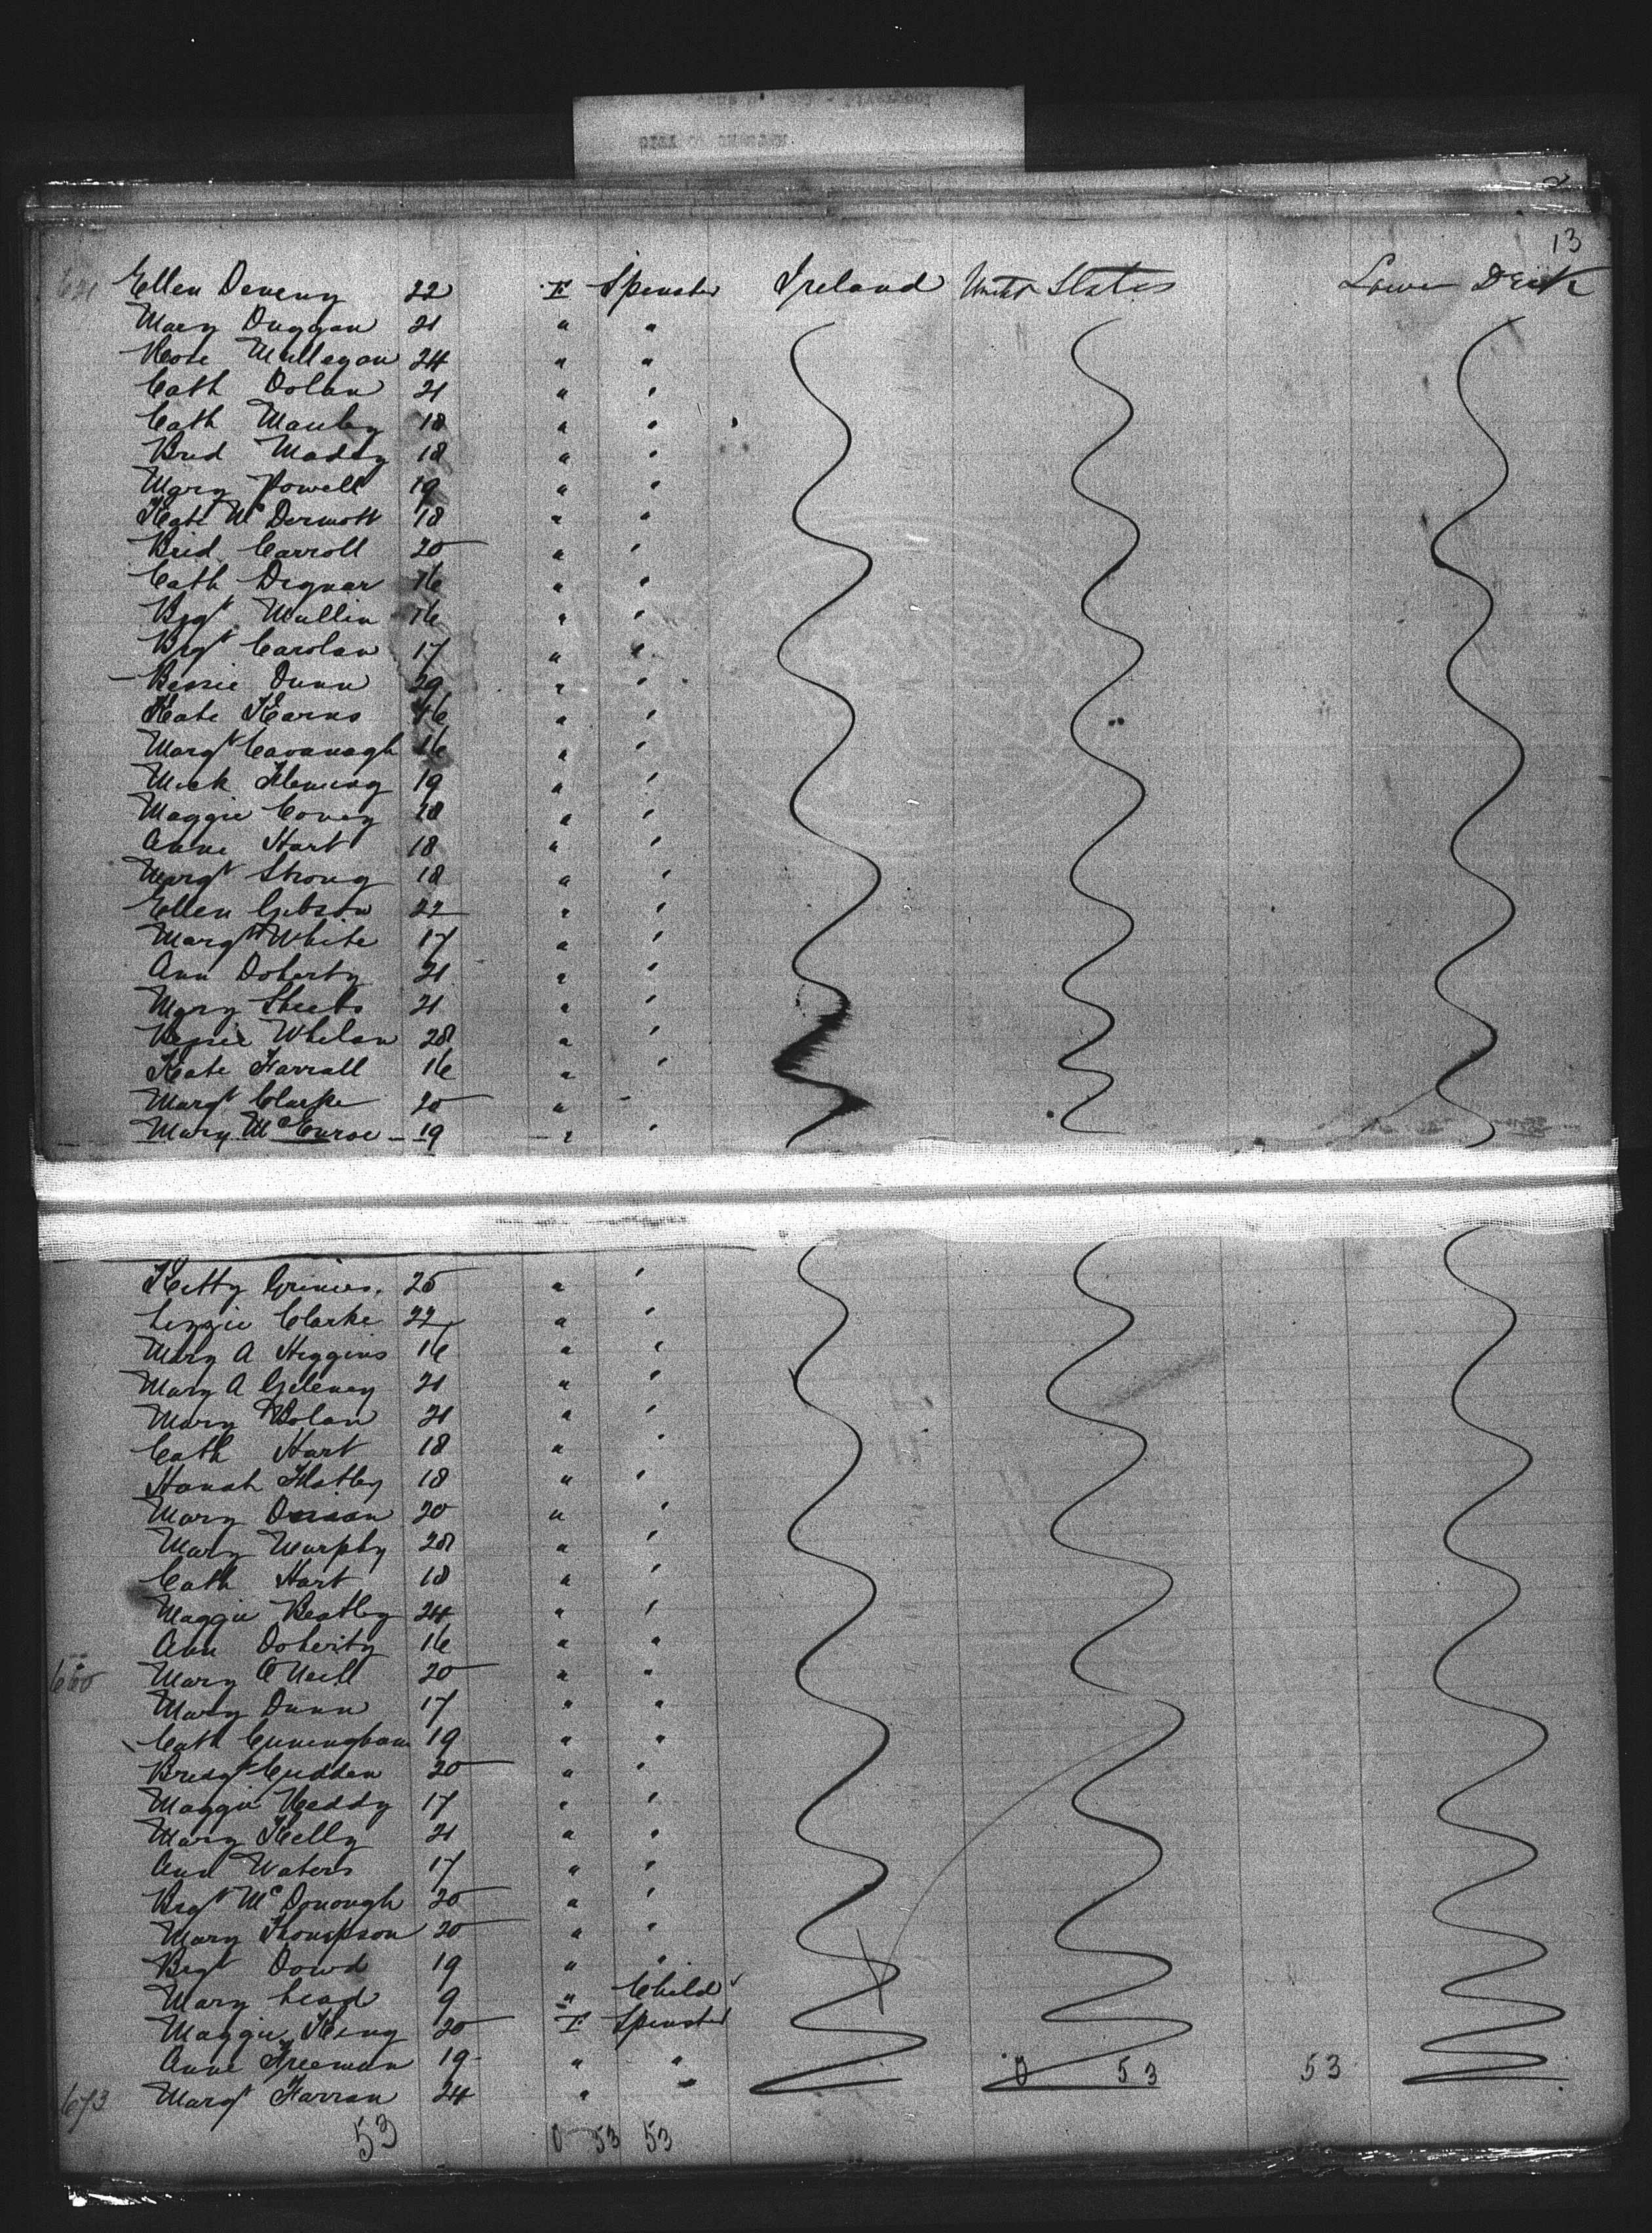 13
621 Ellen Deveny 22 F Spinster Ireland United States Lower Deck
Mary Duggan 21 " "
Rose Mullegan 24 " "
Cath Dolan 21 " "
Cath Manley 18 " "
Brid Madey 18 " "
Mary Powell 19 " "
Kate McDermott 18 " "
Brid Carroll 20 " "
Cath Dignar 16 " "
Bgt Mullin 16 " "
Brgt Carolan 17 " "
Bessie Dunn 29 " "
Kate Kearns 16 " "
Margt Cavanagh 16 " "
Mick Fleming 19 " "
Maggie Covey 18 " "
Anne Hart 18 " "
Margt Strong 18 " "
Ellen Gibson 22 " "
Margt White 17 " "
Ann Doherty 21 " "
Mary 21 " "
Bessie Whelan 28 " "
Kate Farrall 16 " "
Margt Clarke 20 "
Mary 19 " "
Kitty Grimes. 25 " "
Lizzie Clarke 22 " "
Mary A Higgins 16 " "
Mary A Gileney 21 " "
Mary Bolan 21 " "
Cath Hart 18 " "
Hanah Flatley 18 " "
Mary 20 " "
Mary Murphy 28 " "
Cath Hart 18 " "
Maggie Beatley 24 " "
Ann Doherity 16 " "
660 Mary O'Neill 20 " "
Mary Dunn 17 " "
Cath Cuningham 19 " "
Bredgt Cudden 20 " "
Maggie Reddy 17 " "
Mary Kelly 21 " "
Ann Waters 17 " "
Brgt McDonough 20 " "
Mary Thompson 20 " "
Brgt Dowd 19 " "
Mary Lead 9 " Child
Maggie King 20 F Spinster
Anne Freeman 19 " " 0 53 53
673 Margt Farran 24 " "
53 0 53 53